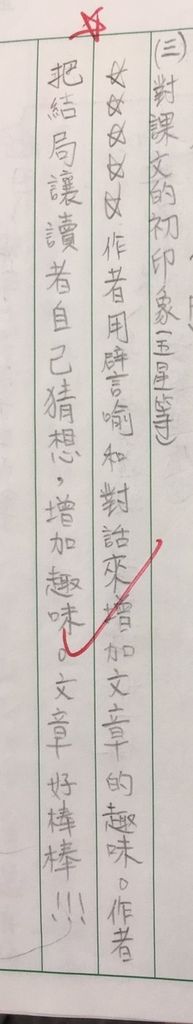 (三)對課文的初印象(五星等)
☆☆☆☆☆作者用譬喻和對話來增加文章的趣味。作者
把結局讓讀者自己猜想,增加趣味。文章好棒棒!!!